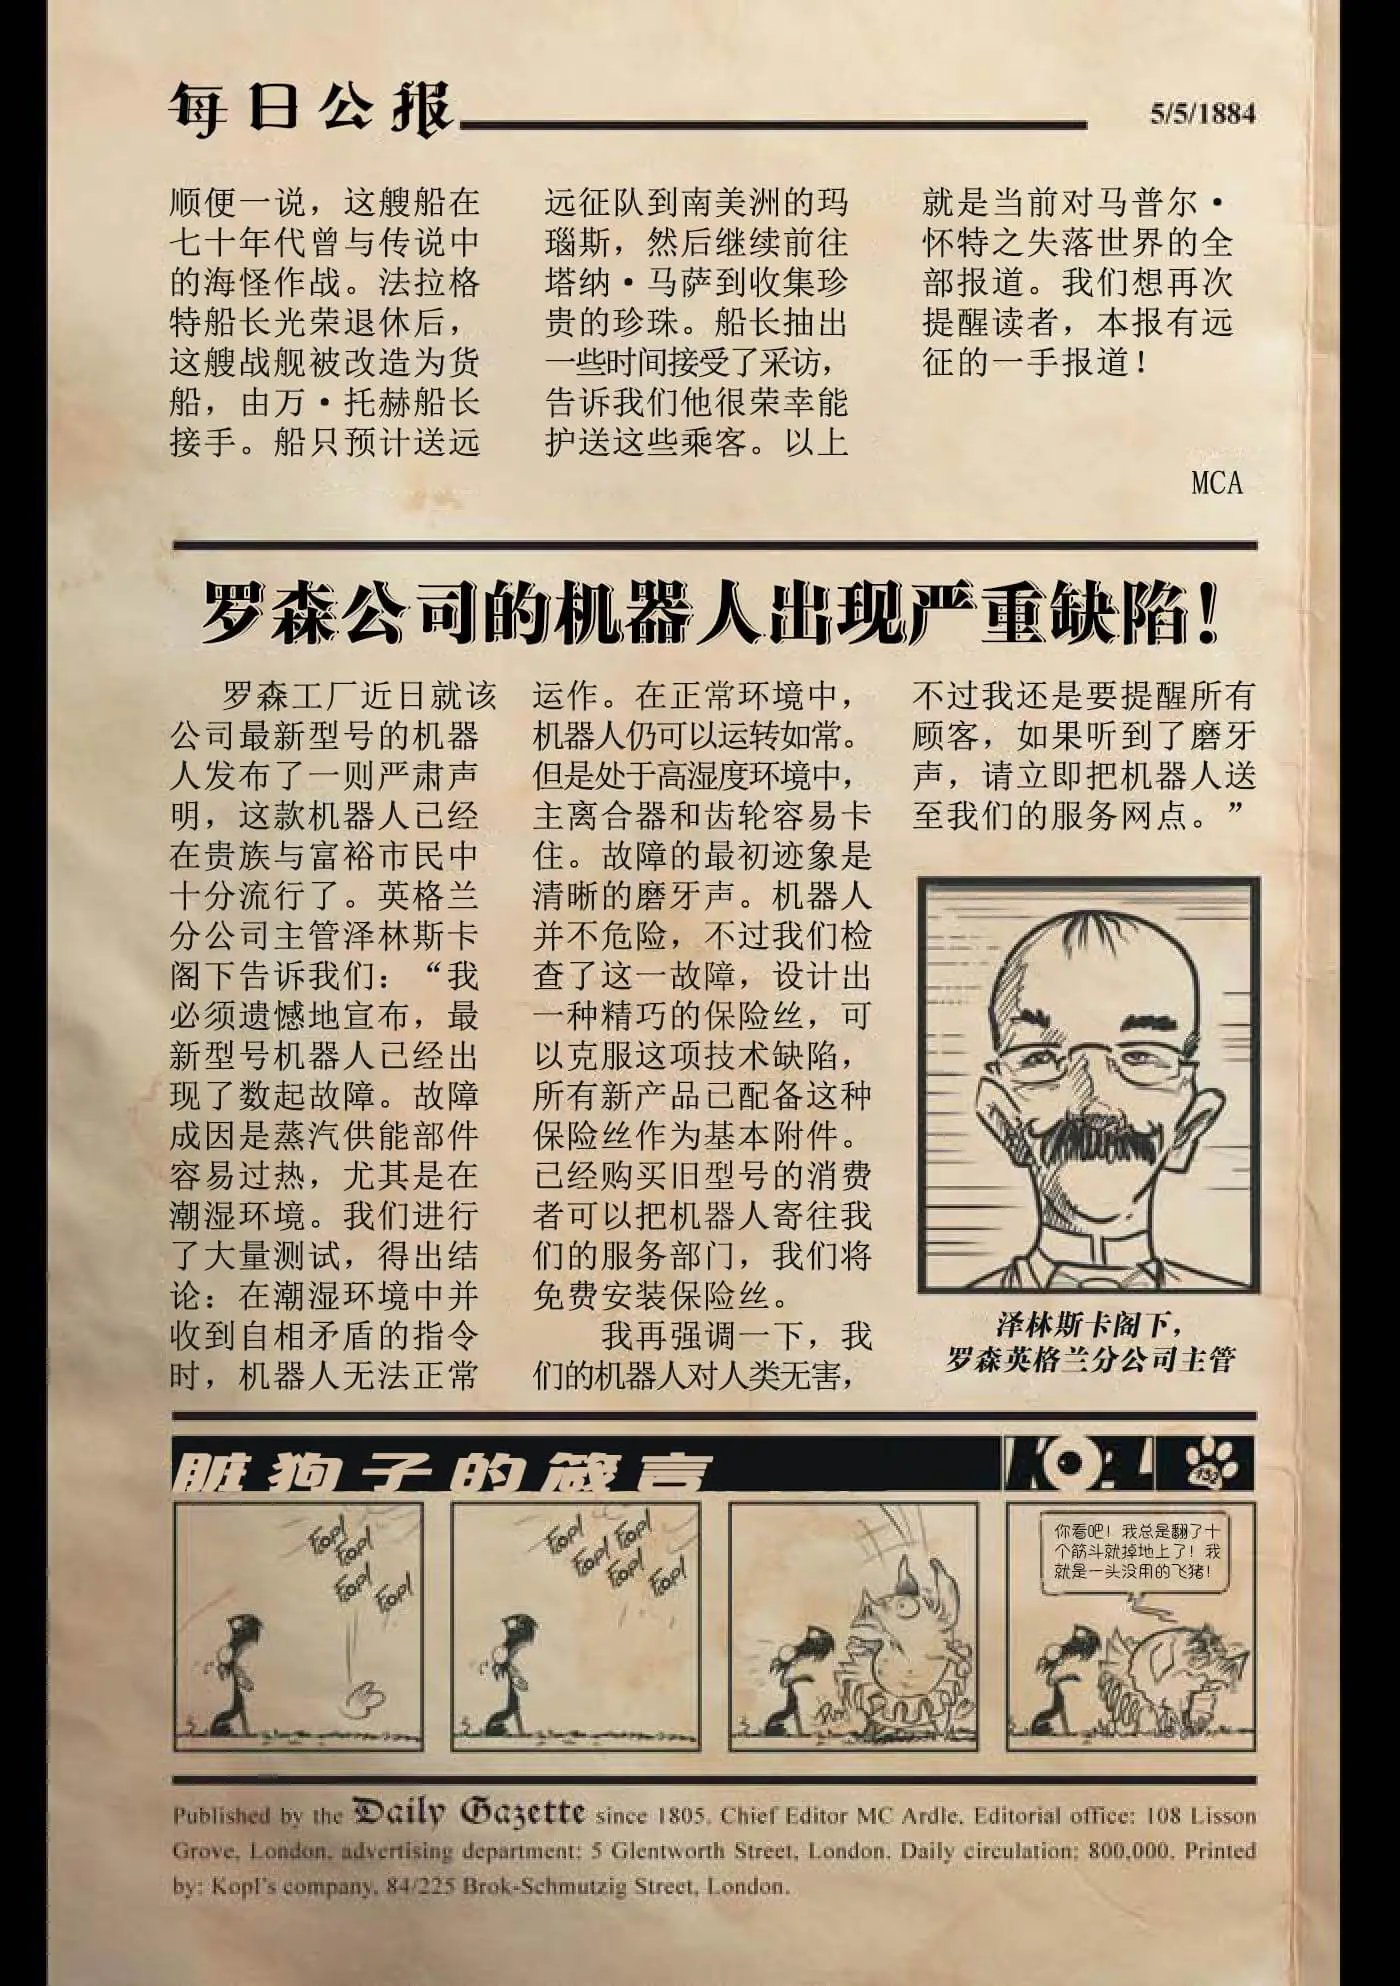 每日公报
5/5/1884
顺便一说，这艘船在
七十年代曾与传说中
的海怪作战。法拉格
特船长光荣退休后，
这艘战舰被改造为货
船，由万·托赫船长
接手。船只预计送远
远征队到南美洲的玛
瑙斯，然后继续前往
塔纳·马萨到收集珍
贵的珍珠。船长抽出
一些时间接受了采访，
告诉我们他很荣幸能
护送这些乘客。以上
就是当前对马普尔·
怀特之失落世界的全
部报道。我们想再次
提醒读者，本报有远
征的一手报道！
MCA
罗森公司的机器人出现严重缺陷！
罗森工厂近日就该
公司最新型号的机器
人发布了一则严肃声
明，这款机器人已经
在贵族与富裕市民中
十分流行了。英格兰
分公司主管泽林斯卡
阁下告诉我们：“我
必须遗憾地宣布，最
新型号机器人已经出
现了数起故障。故障
成因是蒸汽供能部件
容易过热，尤其是在
潮湿环境。我们进行
了大量测试，得出结
论：在潮湿环境中并
收到自相矛盾的指令
时，机器人无法正常
运作。在正常环境中，
机器人仍可以运转如常。
但是处于高湿度环境中，
主离合器和齿轮容易卡
住。故障的最初迹象是
清晰的磨牙声。机器人
并不危险，不过我们检
查了这一故障，设计出
一种精巧的保险丝，可
以克服这项技术缺陷，
所有新产品已配备这种
保险丝作为基本附件。
已经购买旧型号的消费
者可以把机器人寄往我
们的服务部门，我们将
免费安装保险丝。
我再强调一下，我
们的机器人对人类无害，
不过我还是要提醒所有
顾客，如果听到了磨牙
声，请立即把机器人送
至我们的服务网点。”
泽林斯卡阁下，
罗森英格兰分公司主管
脏狗子的箴言
Fop!
Fop!
Fop!
Fop!
Fop!
Fop!
Fop!
Fop!
Fop!
你看吧！我总是翻了十
个筋斗就掉地上了！我
就是一头没用的飞猪！
Published by the Daily Gazette since 1805. Chief Editor MC Ardle. Editorial office: 108 Lisson
Grove, London, advertising department: 5 Glentworth Street, London. Daily circulation: 800,000. Printed
by: Kopl's company, 84/225 Brok-Schmutzig Street, London.